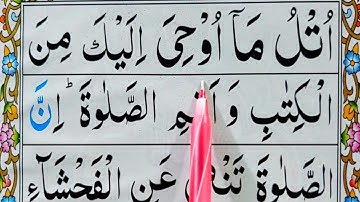 اُتْلُ مَاۤ اُوْحِیَ اِلَیْكَ مِنَ
الْكِتٰبِ وَ اَقِمِ الصَّلٰوةَ ؕ اِنَّ
الصَّلٰوةَ تَنْهٰی عَنِ الْفَحْشَآءِ